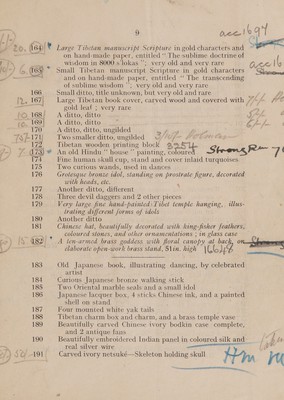 9
acc1697
20. 164 Large Tibetan manuscript Scripture in gold characters and
on hand-made paper, entitled "The sublime doctrine of
wisdom in 8000 s'lokas"; very old and very rare
6. 165 Small Tibetan manuscript Scripture in gold characters
and on hand-made paper, entitled "The transcending
of sublime wisdom"; very old and very rare
166 Small ditto, title unknown, but very old and rare
12. 167 Large Tibetan book cover, carved wood and covered with
gold leaf; very rare
10. 168 A ditto, ditto
10. 169 A ditto, ditto
170 A ditto, ditto, ungilded
171 Two smaller ditto, ungilded
172 Tibetan wooden printing block 3254
173 An old Hindu "house" painting, coloured Strong Rm
174 Fine human skull cup, stand cover inlaid turquoises
175 Two curious wands, used in dances
176 Grotesque bronze idol, standing on prostrate figure, decorated
with heads, etc.
177 Another ditto, different
178 Three devil daggers and 2 other pieces
179 Very large fine hand-painted Tibet temple hanging, illus-
trating different forms of idols
180 Another ditto
181 Chinese hat, beautifully decorated with king-fisher feathers,
coloured stones, and other ornamentations; in glass case
182 A ten-armed brass goddess with floral canopy at back, on
elaborate open-work brass stand, 51in. high 16648
183 Old Japanese book, illustrating dancing, by celebrated
artist
184 Curious Japanese bronze walking stick
185 Two Oriental marble seals and a small idol
186 Japanese lacquer box, 4 sticks Chinese ink, and a painted
shell on stand
187 Four mounted white yak tails
188 Tibetan charm box and charm, and a brass temple vase
189 Beautifully carved Chinese ivory bodkin case complete,
and 2 antique fans
190 Beautifully embroidered Indian panel in coloured silk and
real silver wire
50/ 191 Carved ivory netsuké—Skeleton holding skull